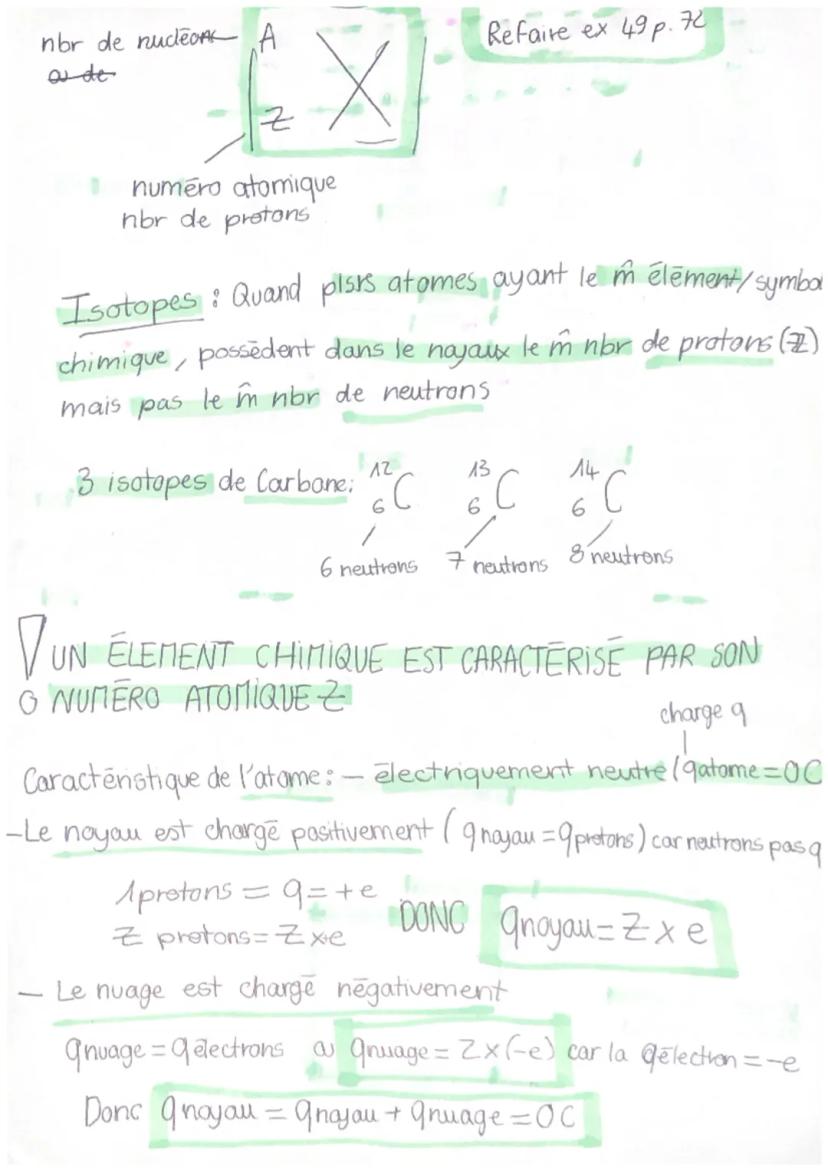 nbr de nucléons A X
ou de
Z
Refaire ex 49 p. 72
numéro atomique
nbr de protons
Isotopes : Quand plsrs atomes ayant le m̂ élément/symbol
chimique, possèdent dans le noyaux le m̂ nbr de protons (Z)
mais pas le m̂ nbr de neutrons
3 isotopes de Carbone: 12 6 C 13 6 C 14 6 C
6 neutrons 7 neutrons 8 neutrons
UN ÉLEMENT CHIMIQUE EST CARACTÉRISÉ PAR SON
NUMÉRO ATOMIQUE Z
charge q
Caractéristique de l'atome: - électriquement neutre (qatome = 0C
- Le noyau est chargé positivement (qnoyau = qprotons) car neutrons pas q
1 protons = q = +e
Z protons = Z x e
DONC qnoyau = Z x e
- Le nuage est chargé négativement
qnuage = qélectrons ou qnuage = Z x (-e) car la qélection = -e
Donc qnoyau = qnoyau + qnuage = 0C